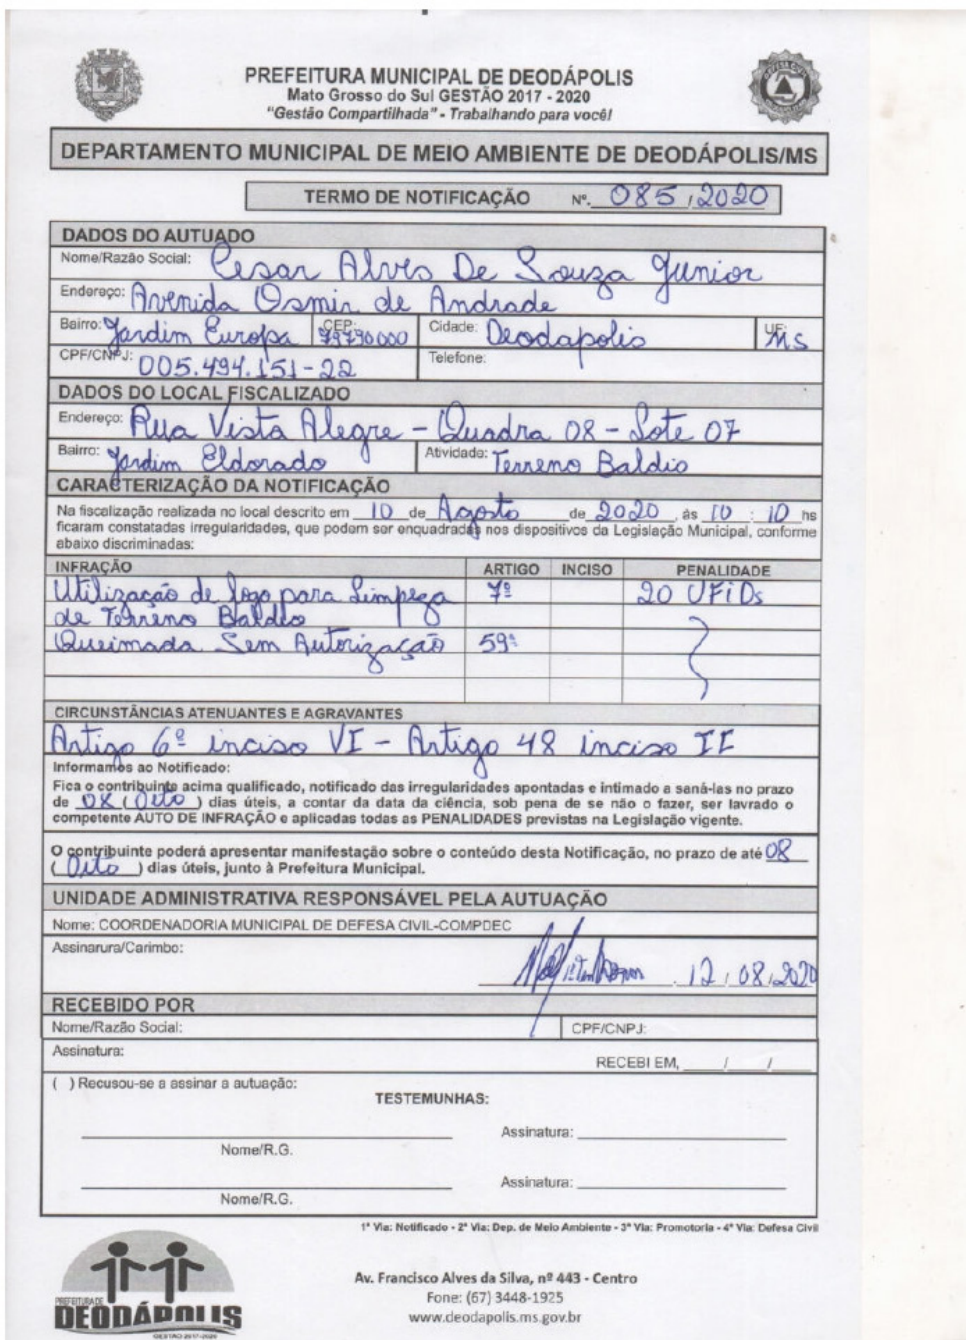 PREFEITURA MUNICIPAL DE DEODÁPOLIS
Mato Grosso do Sul GESTÃO 2017 - 2020
"Gestão Compartilhada" - Trabalhando para você!
DEPARTAMENTO MUNICIPAL DE MEIO AMBIENTE DE DEODÁPOLIS/MS
TERMO DE NOTIFICAÇÃO Nº. 085 / 2020
DADOS DO AUTUADO
Nome/Razão Social: Cesar Alves De Souza Junior
Endereço: Avenida Osmir de Andrade
Bairro: Jardim Europa CEP: 79790000 Cidade: Deodapolis UF: MS
CPF/CNPJ: 005.494.151-22 Telefone:
DADOS DO LOCAL FISCALIZADO
Endereço: Rua Vista Alegre - Quadra 08 - Lote 07
Bairro: Jardim Eldorado Atividade: Terreno Baldio
CARACTERIZAÇÃO DA NOTIFICAÇÃO
Na fiscalização realizada no local descrito em 10 de Agosto de 2020, às 10 : 10 hs
ficaram constatadas irregularidades, que podem ser enquadradas nos dispositivos da Legislação Municipal, conforme
abaixo discriminadas:
INFRAÇÃO ARTIGO INCISO PENALIDADE
Utilização de fogo para Limpeza 7º 20 UFiDs
de Terreno Baldio
Queimada Sem Autorização 59º
CIRCUNSTÂNCIAS ATENUANTES E AGRAVANTES
Artigo 6º inciso VI - Artigo 48 inciso II
Informamos ao Notificado:
Fica o contribuinte acima qualificado, notificado das irregularidades apontadas e intimado a saná-las no prazo
de 08 ( Oito ) dias úteis, a contar da data da ciência, sob pena de se não o fazer, ser lavrado o
competente AUTO DE INFRAÇÃO e aplicadas todas as PENALIDADES previstas na Legislação vigente.
O contribuinte poderá apresentar manifestação sobre o conteúdo desta Notificação, no prazo de até 08
( Oito ) dias úteis, junto à Prefeitura Municipal.
UNIDADE ADMINISTRATIVA RESPONSÁVEL PELA AUTUAÇÃO
Nome: COORDENADORIA MUNICIPAL DE DEFESA CIVIL-COMPDEC
Assinarura/Carimbo:
12 / 08 / 2020
RECEBIDO POR
Nome/Razão Social: CPF/CNPJ:
Assinatura: RECEBI EM, ____/____/____
( ) Recusou-se a assinar a autuação:
TESTEMUNHAS:
Assinatura:
Nome/R.G.
Assinatura:
Nome/R.G.
1ª Via: Notificado - 2ª Via: Dep. de Meio Ambiente - 3ª Via: Promotoria - 4ª Via: Defesa Civil
Av. Francisco Alves da Silva, nº 443 - Centro
Fone: (67) 3448-1925
www.deodapolis.ms.gov.br
PREFEITURA DE
DEODÁPOLIS
GESTÃO 2017-2020